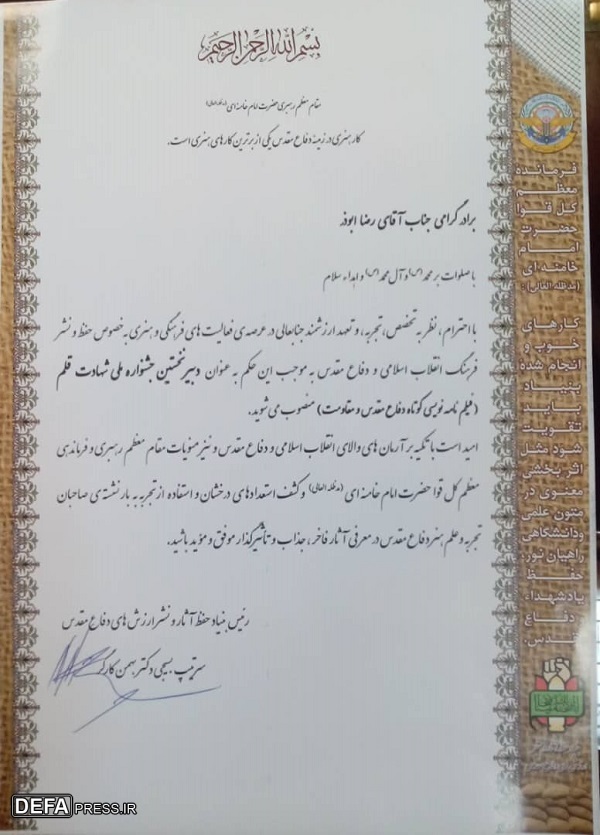 بسم الله الرحمن الرحیم
مقام معظم رهبری حضرت امام خامنه ای (مدظله العالی)
کار هنری در زمینهٔ دفاع مقدس یکی از برترین کارهای هنری است.
برادر گرامی جناب آقای رضا ابوذر
با صلوات بر محمد (ص) و آل محمد (ص) و اهداء سلام
با احترام، نظر به تخصص، تجربه، و تعهد ارزشمند جنابعالی در عرصه ی فعالیت های فرهنگی و هنری به خصوص حفظ و نشر
فرهنگ انقلاب اسلامی و دفاع مقدس به موجب این حکم به عنوان دبیر نخستین جشنواره ملی شهادت قلم
(فیلم نامه نویسی کوتاه دفاع مقدس و مقاومت) منصوب می شوید.
امید است با تکیه بر آرمان های والای انقلاب اسلامی و دفاع مقدس و نیز منویات مقام معظم رهبری و فرماندهی
معظم کل قوا حضرت امام خامنه ای (مدظله العالی) و کشف استعدادهای درخشان و استفاده از تجربه به بار نشسته ی صاحبان
تجربه و علم هنر دفاع مقدس در معرفی آثار فاخر، جذاب و تأثیرگذار موفق و مؤید باشید.
رئیس بنیاد حفظ آثار و نشر ارزش های دفاع مقدس
سرتیپ بسیجی دکتر بهمن کارگر
فرمانده
معظم
کل قوا
حضرت
امام
خامنه ای
(مدظله العالی):
کارهای
خوب و
انجام شده
بنیاد
باید
تقویت
شود مثل
اثر بخشی
معنوی در
متون علمی
و دانشگاهی
راهیان نور،
حفظ
یاد شهداء
و دفاع
مقدس.
DEFAPRESS.IR